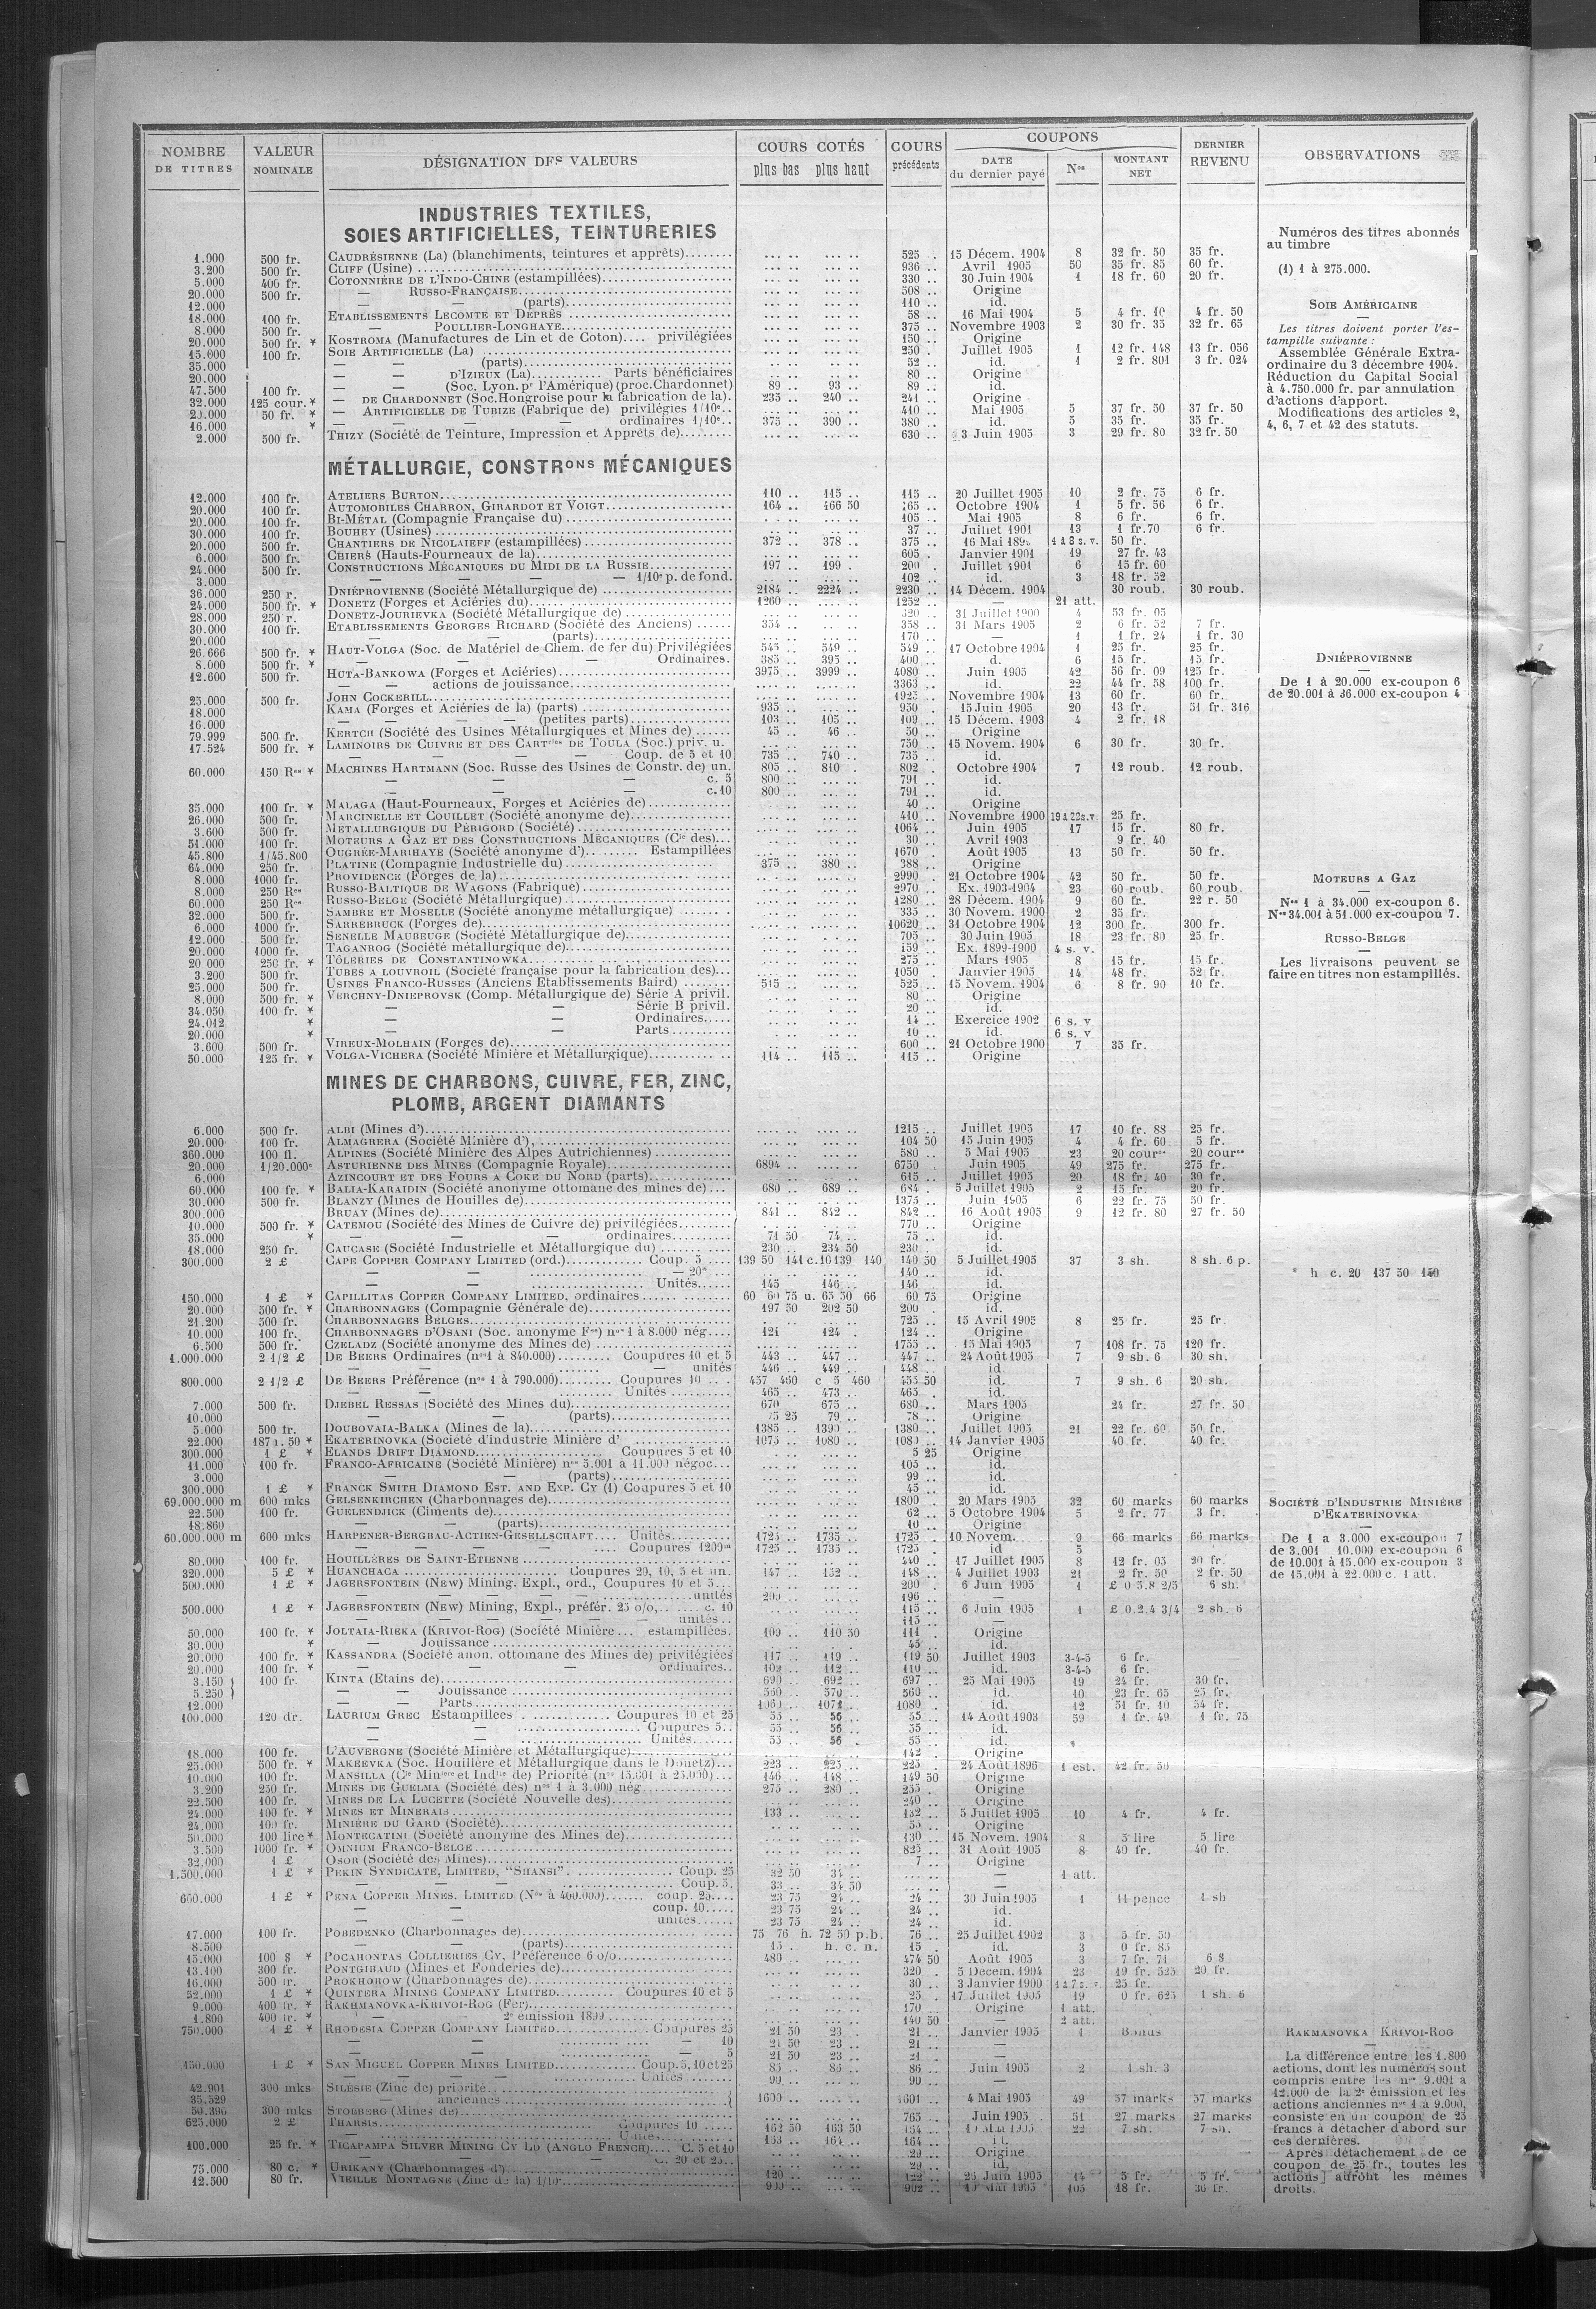 NOMBRE DE TITRES | VALEUR NOMINALE | DÉSIGNATION DES VALEURS | COURS COTÉS plus bas plus haut | COURS précédents | COUPONS DATE du dernier payé | Nos | MONTANT NET | DERNIER REVENU | OBSERVATIONS
INDUSTRIES TEXTILES,
SOIES ARTIFICIELLES, TEINTURERIES
1.000 500 fr. CAUDRÉSIENNE (La) (blanchiments, teintures et apprêts) 525 15 Décem. 1904 8 32 fr. 50 35 fr.
3.200 500 fr. CLIFF (Usine) 936 Avril 1905 50 35 fr. 85 60 fr.
5.000 400 fr. COTONNIÈRE DE L'INDO-CHINE (estampillées) 330 30 Juin 1904 1 18 fr. 60 20 fr.
20.000 500 fr. — RUSSO-FRANÇAISE 508 Origine
12.000 — — (parts) 110 id.
18.000 100 fr. ETABLISSEMENTS LECOMTE ET DEPRÈS 58 16 Mai 1904 5 4 fr. 10 4 fr. 50
8.000 500 fr. — POULLIER-LONGHAYE 375 Novembre 1903 2 30 fr. 35 32 fr. 65
20.000 500 fr. * KOSTROMA (Manufactures de Lin et de Coton) privilégiées 150 Origine
15.000 100 fr. SOIE ARTIFICIELLE (La) 250 Juillet 1905 1 12 fr. 148 13 fr. 056
35.000 — — (parts) 52 id. 1 2 fr. 801 3 fr. 024
20.000 — D'IZIEUX (La) Parts bénéficiaires 80 Origine
47.500 100 fr. — — (Soc. Lyon. pr l'Amérique) (proc. Chardonnet) 89 93 89 id.
32.000 125 cour. * — DE CHARDONNET (Soc. Hongroise pour la fabrication de la). 235 240 241 Origine
20.000 50 fr. * — ARTIFICIELLE DE TUBIZE (Fabrique de) privilégies 1/10e 410 Mai 1905 5 37 fr. 50 37 fr. 50
16.000 * — — — — ordinaires 1/10e 375 390 380 id. 5 35 fr. 35 fr.
2.000 500 fr. THIZY (Société de Teinture, Impression et Apprêts de) 630 3 Juin 1905 3 29 fr. 80 32 fr. 50
Numéros des titres abonnés
au timbre
(1) 1 à 275.000.
SOIE AMÉRICAINE
Les titres doivent porter l'es-
tampille suivante :
Assemblée Générale Extra-
ordinaire du 3 décembre 1904.
Réduction du Capital Social
à 4.750.000 fr. par annulation
d'actions d'apport.
Modifications des articles 2,
4, 6, 7 et 42 des statuts.
MÉTALLURGIE, CONSTRons MÉCANIQUES
12.000 100 fr. ATELIERS BURTON 110 115 115 20 Juillet 1905 10 2 fr. 75 6 fr.
20.000 100 fr. AUTOMOBILES CHARRON, GIRARDOT ET VOIGT 164 166 50 165 Octobre 1904 1 5 fr. 56 6 fr.
20.000 100 fr. BI-MÉTAL (Compagnie Française du) 105 Mai 1905 8 6 fr. 6 fr.
30.000 100 fr. BOUHEY (Usines) 37 Juillet 1901 13 1 fr. 70 6 fr.
20.000 500 fr. CHANTIERS DE NICOLAIEFF (estampillées) 372 378 375 16 Mai 1 à 8 s. v. 50 fr.
6.000 500 fr. CHIERS (Hauts-Fourneaux de la) 605 Janvier 1901 19 27 fr. 43
24.000 500 fr. CONSTRUCTIONS MÉCANIQUES DU MIDI DE LA RUSSIE 197 199 200 Juillet 1901 6 15 fr. 60
3.000 — — — — 1/10e p. de fond. 102 id. 3 18 fr. 52
36.000 250 r. DNIÉPROVIENNE (Société Métallurgique de) 2184 2224 2230 14 Décem. 1904 30 roub. 30 roub.
24.000 500 fr. * DONETZ (Forges et Aciéries du) 1260 1252 — 21 att.
28.000 250 r. DONETZ-JOURIEVKA (Société Métallurgique de) 320 31 Juillet 1900 4 53 fr. 05
30.000 100 fr. ETABLISSEMENTS GEORGES RICHARD (Société des Anciens) 354 358 31 Mars 1905 2 6 fr. 52 7 fr.
20.000 — — (parts) 170 — 1 1 fr. 24 1 fr. 30
26.666 500 fr. * HAUT-VOLGA (Soc. de Matériel de Chem. de fer du) Privilégiées 545 549 549 17 Octobre 1904 1 25 fr. 25 fr.
8.000 500 fr. * — — — Ordinaires. 385 395 400 d. 6 15 fr. 15 fr.
12.600 500 fr. HUTA-BANKOWA (Forges et Aciéries) 3975 3999 4080 Juin 1905 42 56 fr. 09 125 fr.
— — actions de jouissance 3363 id. 22 44 fr. 58 100 fr.
25.000 500 fr. JOHN COCKERILL 1925 Novembre 1904 13 60 fr. 60 fr.
18.000 KAMA (Forges et Aciéries de la) (parts) 935 950 15 Juin 1905 20 43 fr. 51 fr. 316
16.000 — — — — (petites parts) 103 105 109 15 Décem. 1903 4 2 fr. 18
79.999 500 fr. KERTCH (Société des Usines Métallurgiques et Mines de) 45 46 50 Origine
17.524 500 fr. * LAMINOIRS DE CUIVRE ET DES CARTries DE TOULA (Soc.) priv. u. 750 15 Novem. 1904 6 30 fr. 30 fr.
— — — — — Coup. de 5 et 10 735 740 735 id.
60.000 150 Res * MACHINES HARTMANN (Soc. Russe des Usines de Constr. de) un. 805 810 802 Octobre 1904 7 12 roub. 12 roub.
— — — c. 5 800 791 id.
— — — c. 10 800 791 id.
35.000 100 fr. * MALAGA (Haut-Fourneaux, Forges et Aciéries de) 40 Origine
26.000 500 fr. MARCINELLE ET COUILLET (Société anonyme de) 410 Novembre 1900 19 à 22 s.v. 25 fr.
3.600 500 fr. METALLURGIQUE DU PÉRIGORD (Société) 1064 Juin 1905 17 15 fr. 80 fr.
51.000 100 fr. MOTEURS A GAZ ET DES CONSTRUCTIONS MÉCANIQUES (Cie des) 30 Avril 1903 9 fr. 40
45.800 1/45.800 OUGRÉE-MARIHAYE (Société anonyme d') Estampillées 1670 Août 1905 13 50 fr. 50 fr.
64.000 250 fr. PLATINE (Compagnie Industrielle du) 375 380 388 Origine
8.000 1000 fr. PROVIDENCE (Forges de la) 2990 21 Octobre 1904 42 50 fr. 50 fr.
8.000 250 Res RUSSO-BALTIQUE DE WAGONS (Fabrique) 2970 Ex. 1903-1904 23 60 roub. 60 roub.
60.000 250 Res RUSSO-BELGE (Société Métallurgique) 1280 28 Décem. 1904 9 60 fr. 22 r. 50
32.000 500 fr. SAMBRE ET MOSELLE (Société anonyme métallurgique) 335 30 Novem. 1900 2 35 fr.
6.000 1000 fr. SARREBRUCK (Forges de) 10620 31 Octobre 1904 12 300 fr. 300 fr.
12.000 500 fr. SENELLE MAUBEUGE (Société Métallurgique de) 705 30 Juin 1905 18 23 fr. 80 25 fr.
20.000 1000 fr. TAGANROG (Société métallurgique de) 159 Ex. 1899-1900 4 s. v.
20 000 250 fr. * TÔLERIES DE CONSTANTINOWKA 275 Mars 1905 8 15 fr. 15 fr.
3.200 500 fr. TUBES A LOUVROIL (Société française pour la fabrication des) 1050 Janvier 1905 14 48 fr. 52 fr.
25.000 500 fr. USINES FRANCO-RUSSES (Anciens Etablissements Baird) 515 525 15 Novem. 1904 6 8 fr. 90 10 fr.
8.000 500 fr. * VERCHNY-DNIEPROVSK (Comp. Métallurgique de) Série A privil. 80 Origine
34.050 100 fr. * — — Série B privil. 20 id.
24.012 * — — Ordinaires 14 Exercice 1902 6 s. v
20.000 * — — Parts 10 id. 6 s. v
3.600 500 fr. VIREUX-MOLHAIN (Forges de) 600 21 Octobre 1900 7 35 fr.
50.000 125 fr. * VOLGA-VICHERA (Société Minière et Métallurgique) 114 115 115 Origine
DNIÉPROVIENNE
De 1 à 20.000 ex-coupon 6
de 20.001 à 36.000 ex-coupon 4
MOTEURS A GAZ
Nos 1 à 34.000 ex-coupon 6.
Nos 34.001 à 51.000 ex-coupon 7.
RUSSO-BELGE
Les livraisons peuvent se
faire en titres non estampillés.
MINES DE CHARBONS, CUIVRE, FER, ZINC,
PLOMB, ARGENT DIAMANTS
6.000 500 fr. ALBI (Mines d') 1215 Juillet 1905 17 10 fr. 88 25 fr.
20.000 100 fr. ALMAGRERA (Société Minière d') 104 50 15 Juin 1905 4 4 fr. 60 5 fr.
360.000 100 fl. ALPINES (Société Minière des Alpes Autrichiennes) 580 5 Mai 1905 23 20 coures 20 coures
20.000 1/20.000e ASTURIENNE DES MINES (Compagnie Royale) 6894 6750 Juin 1905 49 275 fr. 275 fr.
6.000 AZINCOURT ET DES FOURS A COKE DU NORD (parts) 615 Juillet 1905 20 18 fr. 40 30 fr.
60.000 100 fr. * BALIA-KARAIDIN (Société anonyme ottomane des mines de) 680 689 684 5 Juillet 1905 2 15 fr. 20 fr.
30.000 500 fr. BLANZY (Mines de Houilles de) 1375 Juin 1905 6 22 fr. 75 50 fr.
300.000 BRUAY (Mines de) 841 842 842 16 Août 1905 9 12 fr. 80 27 fr. 50
10.000 500 fr. * CATEMOU (Société des Mines de Cuivre de) privilégiées 770 Origine
35.000 * — — — ordinaires 71 50 74 75 id.
18.000 250 fr. CAUCASE (Société Industrielle et Métallurgique du) 230 234 50 230 id.
300.000 2 £ CAPE COPPER COMPANY LIMITED (ord.) Coup. 5 139 50 141 c. 10 139 140 140 50 5 Juillet 1905 37 3 sh. 8 sh. 6 p.
— — — 20* 140 id.
— — Unités 145 146 146 id.
150.000 1 £ * CAPILLITAS COPPER COMPANY LIMITED, ordinaires 60 60 75 u. 65 50 66 60 75 Origine
20.000 500 fr. * CHARBONNAGES (Compagnie Générale de) 197 50 202 50 200 id.
21.200 500 fr. CHARBONNAGES BELGES 725 15 Avril 1905 8 25 fr. 25 fr.
10.000 100 fr. CHARBONNAGES D'OSANI (Soc. anonyme Fse) nos 1 à 8.000 nég. 121 124 124 Origine
6.500 500 fr. CZELADZ (Société anonyme des Mines de) 1755 15 Mai 1905 7 108 fr. 75 120 fr.
1.000.000 2 1/2 £ DE BEERS Ordinaires (nos 1 à 840.000) Coupures 10 et 5 443 447 447 24 Août 1905 7 9 sh. 6 30 sh.
— — — unités 446 449 448 id.
800.000 2 1/2 £ DE BEERS Préférence (nos 1 à 790.000) Coupures 10 457 460 c 5 460 455 50 id. 7 9 sh. 6 20 sh.
— — Unités 465 473 465 id.
7.000 500 fr. DJEBEL RESSAS (Société des Mines du) 670 675 680 Mars 1905 24 fr. 27 fr. 50
10.000 — — (parts) 75 25 79 78 Origine
5.000 500 fr. DOUBOVAIA-BALKA (Mines de la) 1385 1390 1380 Juillet 1905 21 22 fr. 60 50 fr.
22.000 187 r. 50 * EKATERINOVKA (Société d'industrie Minière d' 1075 1080 1080 14 Janvier 1905 40 fr. 40 fr.
300.000 1 £ * ELANDS DRIFT DIAMOND Coupures 5 et 10 5 25 Origine
11.000 100 fr. FRANCO-AFRICAINE (Société Minière) nos 5.001 à 11.000 négoc. 105 id.
3.000 — — (parts) 99 id.
300.000 1 £ * FRANCK SMITH DIAMOND EST. AND EXP. CY (1) Coupures 5 et 10 45 id.
69.000.000 m 600 mks GELSENKIRCHEN (Charbonnages de) 1800 20 Mars 1905 32 60 marks 60 marks
22.500 100 fr. GUELENDJICK (Ciments de) 62 5 Octobre 1904 5 2 fr. 77 3 fr.
18.860 — — (parts) 10 Origine
60.000.000 m 600 mks HARPENER-BERGBAU-ACTIEN-GESELLSCHAFT Unités 1725 1735 1725 10 Novem. 9 66 marks 66 marks
— — — — Coupures 1200m 1725 1735 1725 id 5
80.000 100 fr. HOUILLÈRES DE SAINT-ETIENNE 440 17 Juillet 1905 8 12 fr. 05 20 fr.
320.000 5 £ * HUANCHACA Coupures 20, 10, 5 et un. 147 152 148 4 Juillet 1903 21 2 fr. 50 2 fr. 50
500.000 1 £ * JAGERSFONTEIN (New) Mining. Expl., ord., Coupures 10 et 5 200 6 Juin 1905 1 £ 0 5.8 2/5 6 sh.
unités 205 196 —
500.000 1 £ * JAGERSFONTEIN (New) Mining, Expl., préfér. 25 o/o, c. 10 115 6 Juin 1905 1 £ 0.2.4 3/4 2 sh. 6
— — — — unités 115 —
50.000 100 fr. * JOLTAIA-RIEKA (KRIVOI-ROG) (Société Minière estampillées. 109 110 50 111 Origine
30.000 * — Jouissance 45 id.
20.000 100 fr. * KASSANDRA (Société anon. ottomane des Mines de) privilégiées 117 119 119 50 Juillet 1903 3-4-5 6 fr.
20.000 100 fr. * — — — ordinaires 109 112 110 id. 3-4-5 6 fr.
3.150 100 fr. KINTA (Etains de) 690 692 697 25 Mai 1905 19 24 fr. 30 fr.
5.250 — — Jouissance 560 570 560 id. 10 23 fr. 65 25 fr.
12.000 — — Parts 1065 1071 1080 id. 12 51 fr. 10 54 fr.
100.000 120 dr. LAURIUM GREC Estampillées Coupures 10 et 25 55 56 55 14 Août 1903 59 1 fr. 49 1 fr. 75
— — Coupures 5 55 56 55 id.
— — Unités 55 56 55 id.
18.000 100 fr. L'AUVERGNE (Société Minière et Métallurgique) 142 Origine
25.000 500 fr. * MAKEEVKA (Soc. Houillère et Métallurgique dans le Donetz) 223 225 225 24 Août 1896 1 est. 42 fr. 50
10.000 100 fr. MANSILLA (Cie Minère et Indle de) Priorité (nos 15.001 à 25.000) 146 148 149 50 Origine
3.200 250 fr. MINES DE GUELMA (Société des) nos 1 à 3.000 nég 275 280 255 Origine
22.500 100 fr. MINES DE LA LUCETTE (Société Nouvelle des) 240 Origine
24.000 100 fr. * MINES ET MINERAIS 133 132 5 Juillet 1905 10 4 fr. 4 fr.
24.000 100 fr. MINIÈRE DU GARD (Société) 55 Origine
50.000 100 lire * MONTECATINI (Société anonyme des Mines de) 130 15 Novem. 1904 8 5 lire 5 lire
3.500 1000 fr. * OMNIUM FRANCO-BELGE 825 31 Août 1905 8 40 fr. 40 fr.
32.000 1 £ OSOR (Société des Mines) 7 Origine
1.500.000 1 £ * PEKIN SYNDICATE, LIMITED, "SHANSI" Coup. 25 32 50 34 — 1 att.
Coup. 5. 33 34 50 —
600.000 1 £ * PENA COPPER MINES, LIMITED (Nos à 400.000) coup. 25 23 75 24 24 30 Juin 1905 1 11 pence 1 sh
— — coup. 10 23 75 24 24 id.
— — unités 23 75 24 24 id.
17.000 100 fr. POBEDENKO (Charbonnages de) 75 76 h. 72 50 p.b. 76 25 Juillet 1902 3 5 fr. 50
8.500 — (parts) 15 h. c. n. 15 id. 3 0 fr. 85
15.000 100 $ * POCAHONTAS COLLIERIES CY, Préférence 6 o/o 480 474 50 Août 1905 3 7 fr. 71 6 $
13.100 300 fr. PONTGIBAUD (Mines et Fonderies de) 320 5 Décem. 1904 23 19 fr. 525 20 fr.
16.000 500 fr. PROKHOROW (Charbonnages de) 30 3 Janvier 1900 1 à 7 s. v. 25 fr.
52.000 1 £ * QUINTERA MINING COMPANY LIMITED Coupures 10 et 5 25 17 Juillet 1905 19 0 fr. 625 1 sh. 6
9.000 400 fr. * RAKHMANOVKA-KRIVOI-ROG (Fer) 170 Origine 1 att.
1.800 400 fr. * — — 2e émission 1899 140 50 — 2 att.
750.000 1 £ * RHODESIA COPPER COMPANY LIMITED Coupures 25 21 50 23 21 Janvier 1905 1 Bonus
— — — 10 21 50 23 21 —
— — — 5 21 50 23 21 —
150.000 1 £ * SAN MIGUEL COPPER MINES LIMITED Coup. 5, 10 et 25 85 85 86 Juin 1905 2 1 sh. 3
— — Unités 90 90 —
42.901 300 mks SILÉSIE (Zinc de) priorité
35.529 — anciennes 1600 1601 4 Mai 1905 49 57 marks 57 marks
50.396 300 mks STOLBERG (Mines de)
625.000 2 £ THARSIS Coupures 10 162 50 163 50 Juin 1905 51 27 marks 27 marks
100.000 25 fr. * TICAPAMPA SILVER MINING CY LD (ANGLO FRENCH) C. 5 et 10 29 Origine
C. 20 et 25 29 id.
75.000 80 c. * URIKANY (Charbonnages d') 120 25 Juin 1905 14 5 fr. 5 fr.
12.500 80 fr. VIEILLE MONTAGNE (Zinc de la) 1/10e 900 902 1905 105 18 fr. 30 fr.
* h c. 20 137 50 150
SOCIÉTÉ D'INDUSTRIE MINIÈRE
D'EKATERINOVKA
De 1 a 3.000 ex-coupon 7
de 3.001 10.000 ex-coupon 6
de 10.001 à 15.000 ex-coupon 3
de 15.001 à 22.000 c. 1 att.
RAKMANOVKA KRIVOI-ROG
La différence entre les 1.800
actions, dont les numéros sont
compris entre les nos 9.001 à
12.000 de la 2e émission et les
actions anciennes nos 1 à 9.000,
consiste en un coupon de 25
francs à détacher d'abord sur
ces dernières.
Après détachement de ce
coupon de 25 fr., toutes les
actions auront les mêmes
droits.